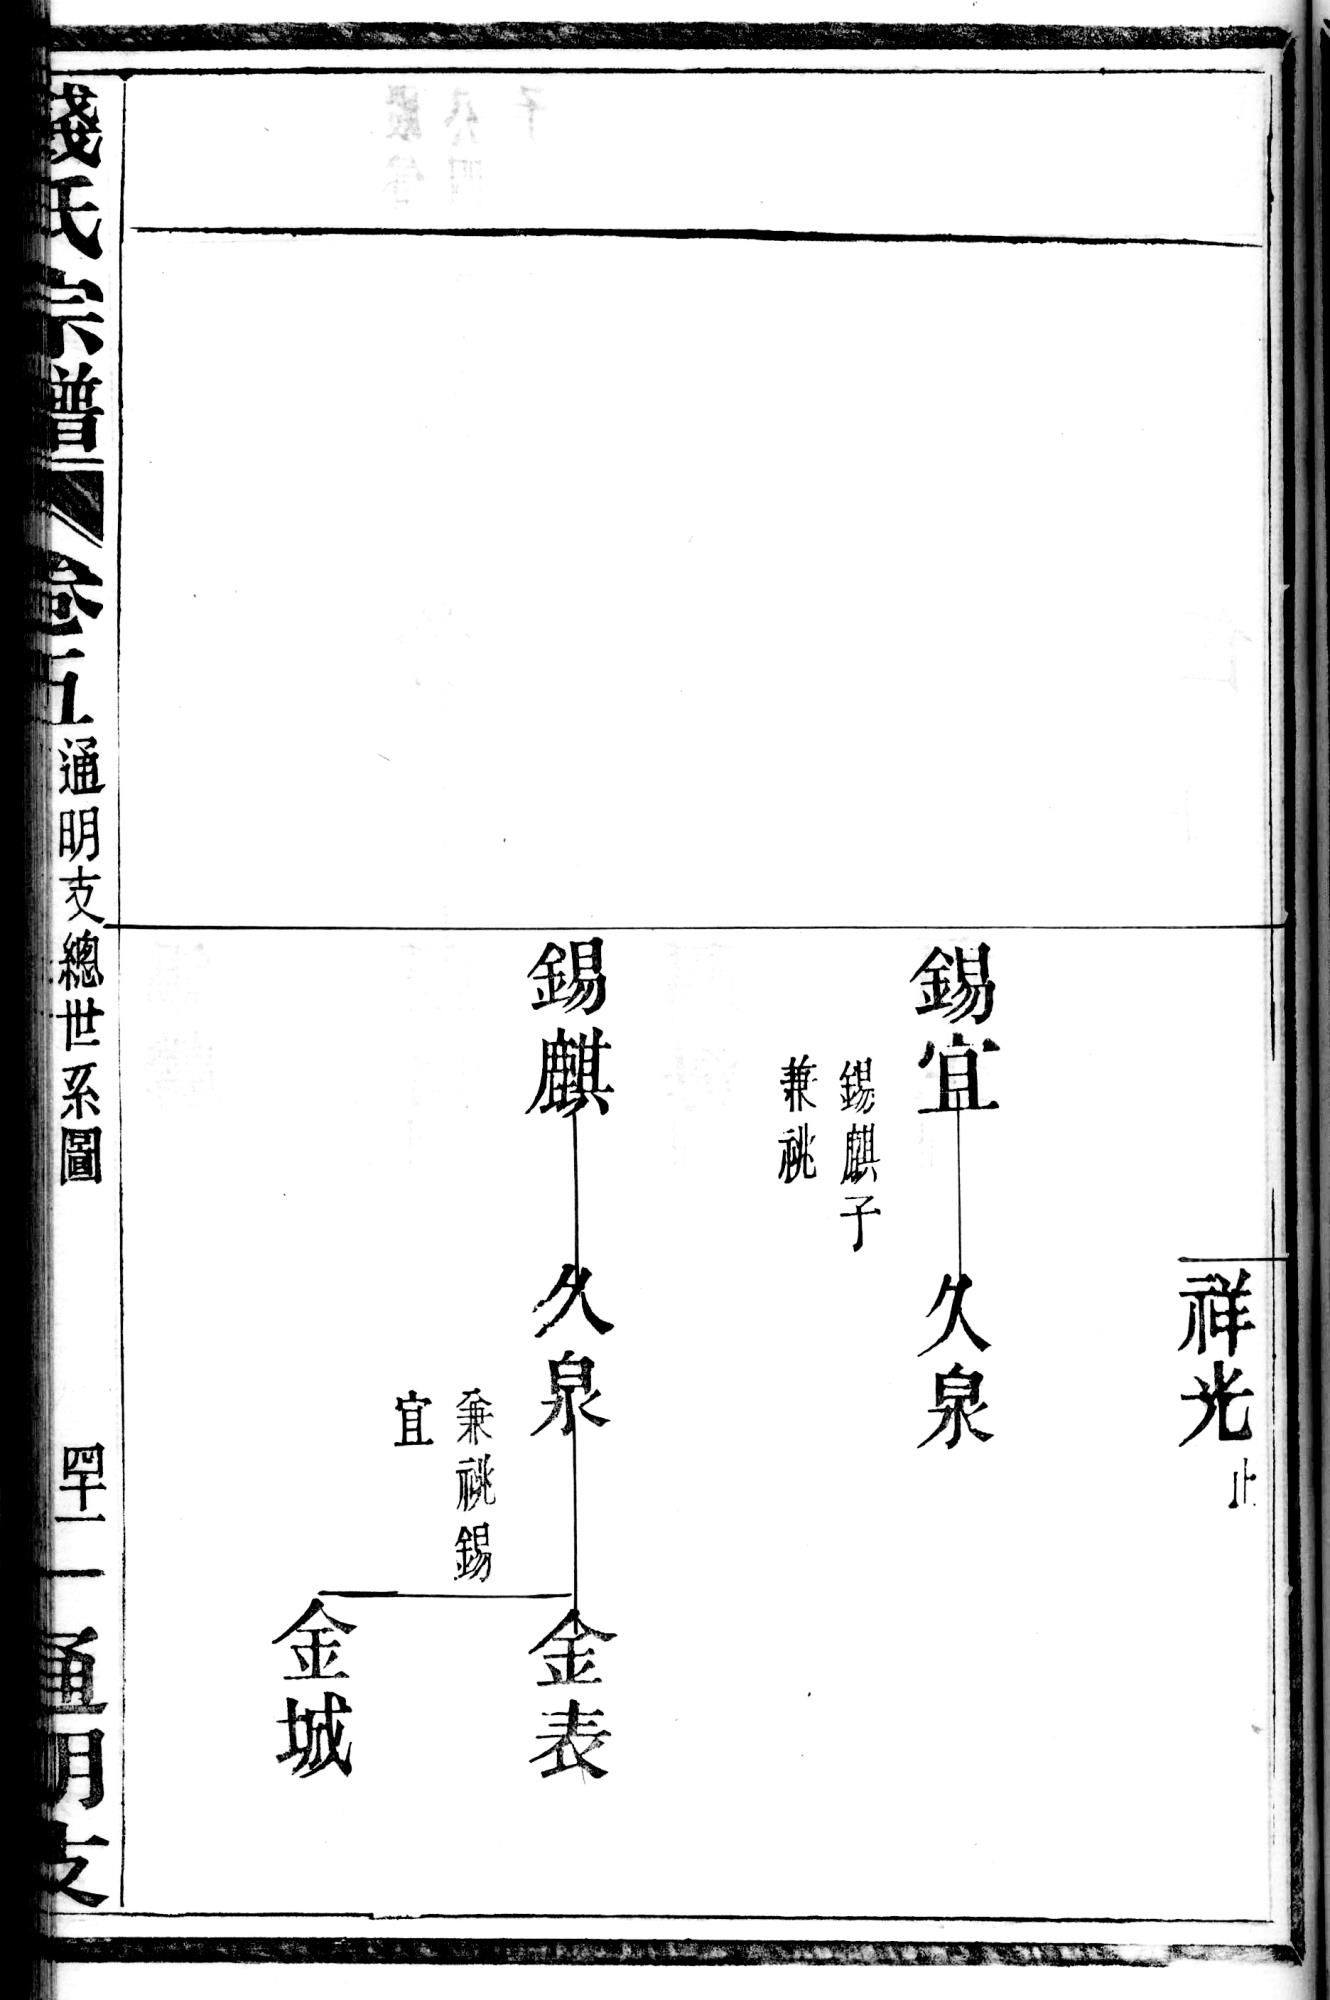 祥光
止
錫宜
久泉
錫麒子
兼祧
錫麒
久泉
兼祧錫
宜
金表
金城
錢氏宗譜
卷五
通明支總世系圖
四十一
通明支